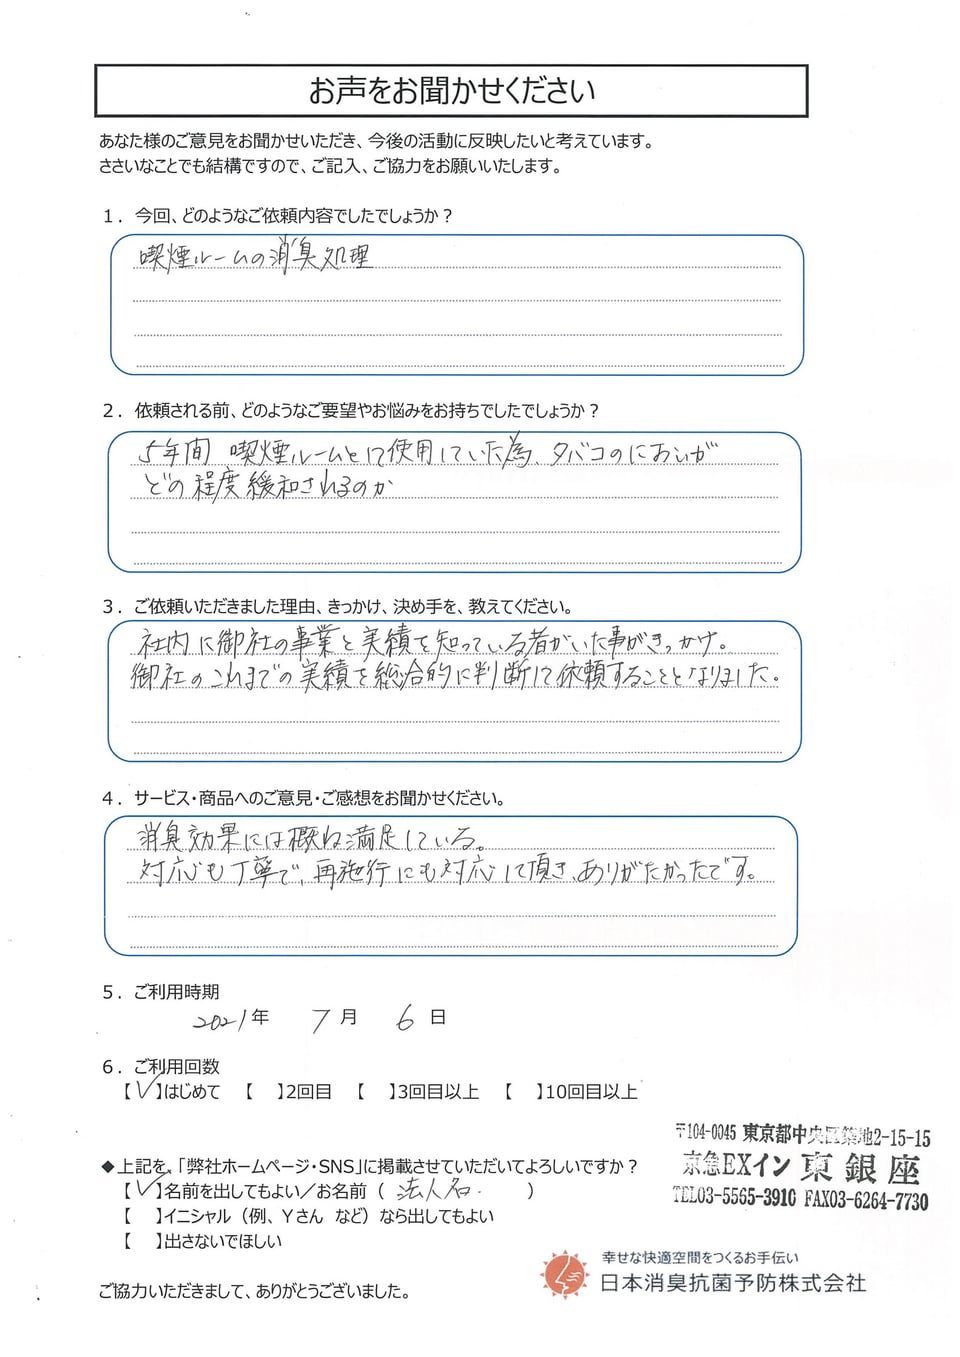 お声をお聞かせください
あなた様のご意見をお聞かせいただき、今後の活動に反映したいと考えています。
ささいなことでも結構ですので、ご記入、ご協力をお願いいたします。
1．今回、どのようなご依頼内容でしたでしょうか？
喫煙ルームの消臭処理
2．依頼される前、どのようなご要望やお悩みをお持ちでしたでしょうか？
5年間 喫煙ルームとして使用していた為、タバコのにおいが
どの程度緩和されるのか
3．ご依頼いただきました理由、きっかけ、決め手を、教えてください。
社内に御社の事業と実績を知っている者がいた事がきっかけ。
御社のこれまでの実績を総合的に判断して依頼することとなりました。
4．サービス・商品へのご意見・ご感想をお聞かせください。
消臭効果には概ね満足している。
対応も丁寧で、再施行にも対応して頂き、ありがたかったです。
5．ご利用時期
2021年 7月 6日
6．ご利用回数
【✓】はじめて 【 】2回目 【 】3回目以上 【 】10回目以上
〒104-0045 東京都中央区築地2-15-15
京急EXイン 東銀座
TEL03-5565-3910 FAX03-6264-7730
◆上記を、「弊社ホームページ・SNS」に掲載させていただいてよろしいですか？
【✓】名前を出してもよい／お名前（ 法人名. ）
【 】イニシャル（例、Yさん など）なら出してもよい
【 】出さないでほしい
幸せな快適空間をつくるお手伝い
日本消臭抗菌予防株式会社
ご協力いただきまして、ありがとうございました。